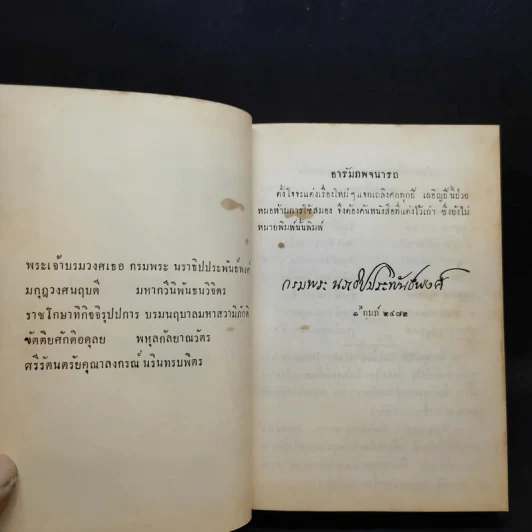 พระเจ้าบรมวงศเธอ กรมพระ นราธิปประพันธ์พงศ์
มกุฎวงศนฤบดี มหากวีนิพันธนวิจิตร
ราชโกษาทิกิจจิรุปปการ บรมนฤบาลมหาสวามิภักดิ์
ขัตติยศักดิอดุลย พหุลกัลยาณวัตร
ศรีรัตนตรัยคุณาลงกรณ์ นรินทรบพิตร
อารัมภพจนารถ
ตั้งใจจะแต่งเรื่องใหม่ๆ แจกเถลิงศกทุกปี เผอิญปีนี้ป่วย
หมอห้ามการใช้สมอง จึงต้องค้นหนังสือที่แต่งไว้เก่า ซึ่งยังไม่
หมายพิมพ์นั้นพิมพ์
กรมพระ นราธิปประพันธ์พงศ์
๑ กุมภ์ ๒๔๗๒